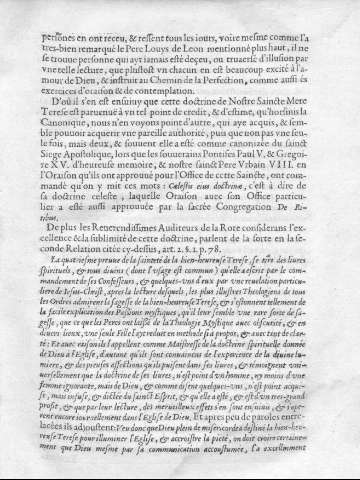 persõnes en ont receu, & ressent tous les iours, voire mesme comme l'a
tres-bien remarqué le Pere Louys de Leon mentionné plus haut, il ne
se trouue personne qui ayt iamais esté deçeu, ou trauersé d'illusion par
vne telle lecture, que plustost vn chacun en est beaucoup excité à l'a-
mour de Dieu, & instruit au Chemin de la Perfection, comme aussi és
exercices d'oraison & de contemplation.
D'où il s'en est ensuiuy que cette doctrine de Nostre Saincte Mere
Terese est paruenuë à vn tel point de credit, & d'estime, qu'horsmis la
Canonique, nous n'en voyons point d'autre, qui aye acquis, & sem-
ble pouuoir acquerir vne pareille authorité, puis que non pas vne seu-
le fois, mais deux, & souuent elle a esté comme canonizée du sainct
Siege Apostolique, lors que les souuerains Pontifes Paul V. & Gregoi-
re XV. d'heureuse memoire, & nostre sainct Pere Vrbain VIII. en
l'Oraison qu'ils ont approuué pour l'Office de cette Saincte, ont com-
mandé qu'on y mit ces mots: Cœlestis eius doctrinæ, c'est à dire de
sa doctrine celeste, laquelle Oraison auec son Office particu-
lier a esté aussi approuuée par la sacrée Congregation De Ri-
tibus.
De plus les Reuerendissimes Auditeurs de la Rote considerans l'ex-
cellence & la sublimité de cette doctrine, parlent de la sorte en la se-
conde Relation citée cy-dessus, art. 2. §. 2. p. 78.
La quatriesme preuue de la saincteté de la bien-heureuse Terese, se tire des liures
spirituels, & tous diuins (dont l'vsage est commun) qu'elle a escrit par le com-
mandement de ses Confesseurs, & quelques-vns d'eux par vne reuelation particu-
liere de Iesus-Christ, apres la lecture desquels, les plus illustres Theologiens de tous
les Ordres admirent la sagesse de la bien-heureuse Terese, & s'estonnent tellement de
la facile explication des Passions mystiques, qu'il leur semble vne rare sorte de sa-
gesse, que ce que les Peres ont laissé de la Theologie Mystique auec obscurité, & en
diuers lieux, vne seule Fille l'a ye reduit en methode si à propos, & auec tant de clar-
té: Et auec raison ils l'appellent comme Maistresse de la doctrine spirituelle donnée
de Dieu à l'Eglise, d'autant qu'ils sont conuaincus de l'experience de la diuine lu-
miere, & des pieuses affections qu'ils puisent dans ses liures, & tesmoignent vni-
uersellement que la doctrine de ses liures, n'est point d'vn homme, ny moins d'vne
femme ignorante, mais de Dieu, & comme disent quelques-vns, n'est point acqui-
se, mais infuse, & dictée du sainct Esprit, & qu'elle a esté, & est d'vn tres-grand
profit, & que par leur lecture, des merueilleux effets s'en sont ensuiuis, & s'espe-
rent encore iournellement dans l'Eglise de Dieu. Et apres peu de paroles entre-
lacées ils adioustent: Veu donc que Dieu plein de misericorde a destiné la bien-heu-
reuse Terese pour illuminer l'Eglise, & accroistre la pieté, on doit croire certaine-
ment que Dieu mesme par sa communication accoustumée, l'a excellemment